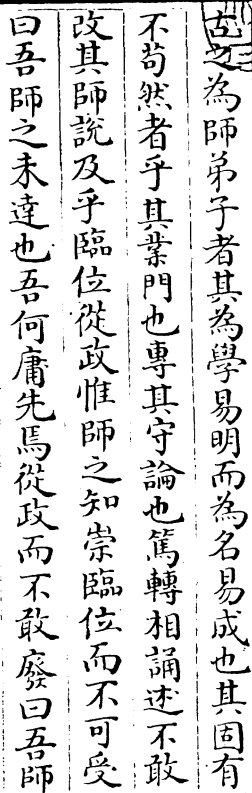 古之為師弟子者其為學易明而為名易成也其固有
不苟然者乎其業門也專其守論也篤轉相誦述不敢
改其師說及乎臨位從政惟師之知崇臨位而不可受
曰吾師之未達也吾何庸先焉從政而不敢廢曰吾師